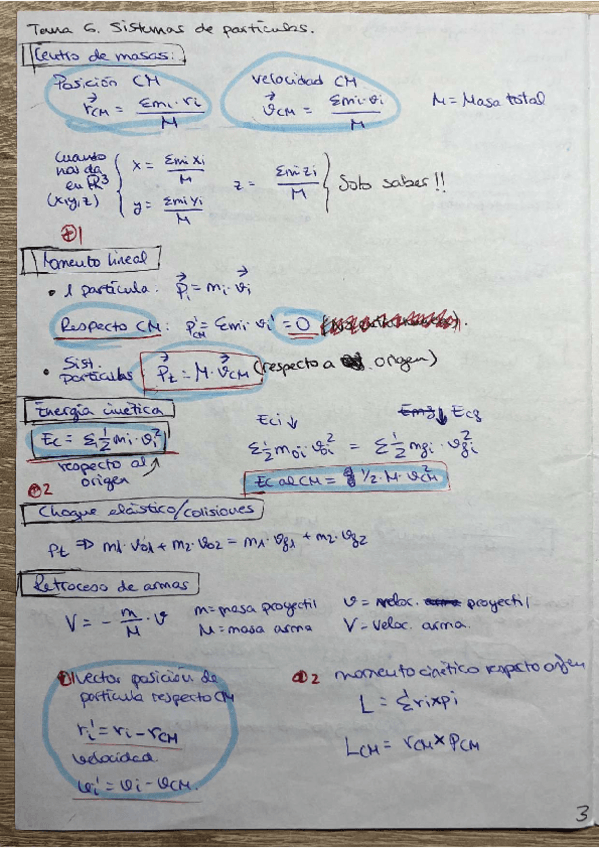 Tema 6. Sistemas de partículas.
Centro de masas:
Posición CM
r⃗CM = Σmi·ri / M
velocidad CM
v⃗CM = Σmi·vi / M
M = Masa total
Cuando nos da en R³ (x,y,z)
x = Σmi xi / M
y = Σmi yi / M
z = Σmi zi / M
Solo saber!!
⊕1
Momento lineal
• 1 partícula. p⃗i = mi·v⃗i
Respecto CM: p'CM = Σmi·vi' = 0
• Sist. partículas P⃗t = M·v⃗CM (respecto a origen)
Energía cinética
Ec = Σ½mi·vi²
respecto al origen
Eci ↓
↓ Ecf
Σ½m0i·v0i² = Σ½mfi·vfi²
Ec al CM = 1/2·M·vCM²
⊕2
Choque elástico/colisiones
Pt ⇒ m1·v01 + m2·v02 = m1·vf1 + m2·vf2
Retroceso de armas
V = - m/M · v
m = masa proyectil
M = masa arma
v = veloc. proyectil
V = veloc. arma.
⊕1 Vector posición de
partícula respecto CM
ri' = ri - rCM
velocidad
vi' = vi - vCM.
⊕2 momento cinético respecto origen
L = Σri×pi
LCM = rCM × PCM
3